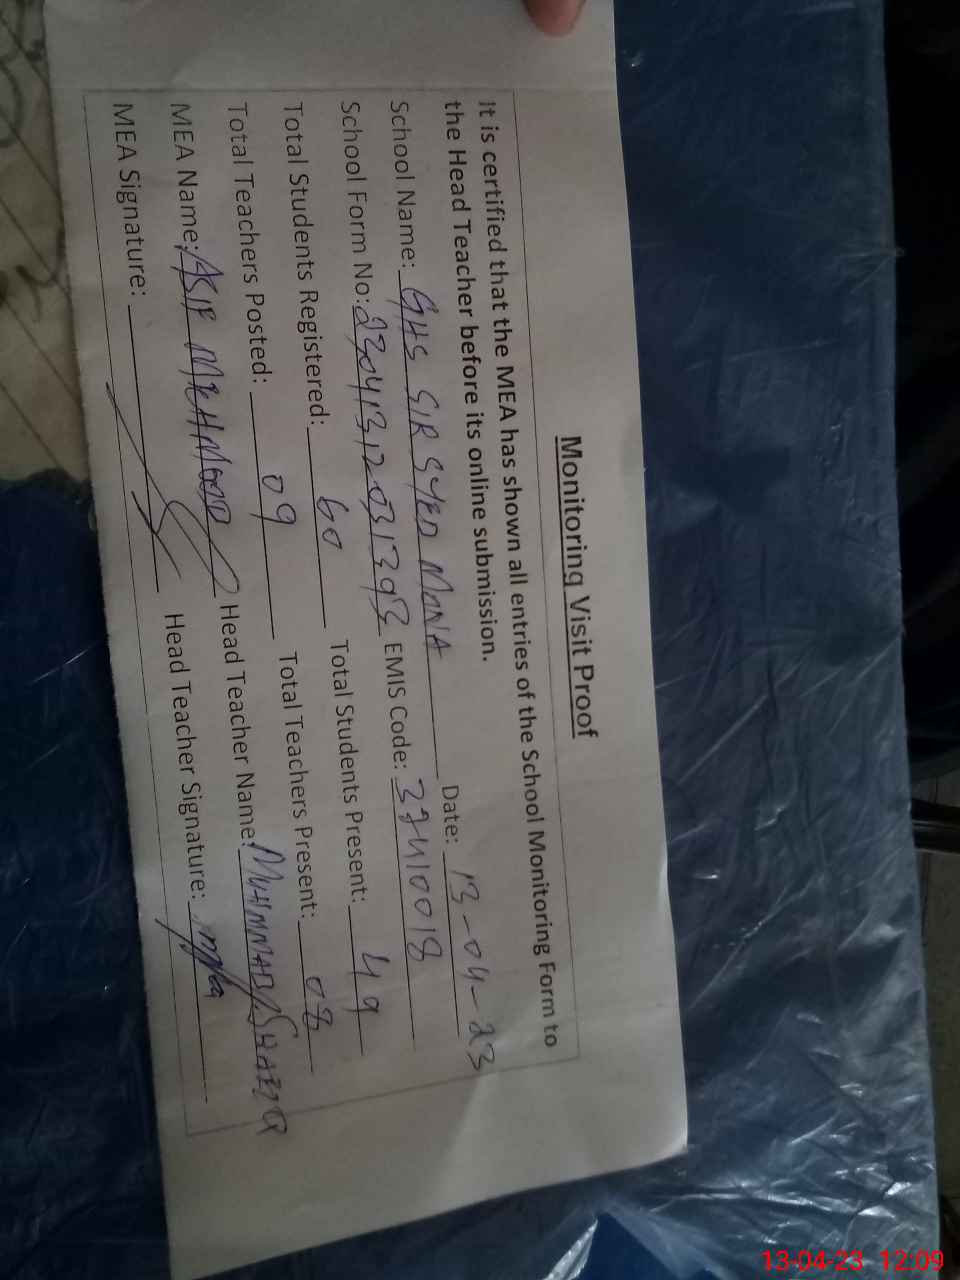 Monitoring Visit Proof
It is certified that the MEA has shown all entries of the School Monitoring Form to
the Head Teacher before its online submission.
School Name: GHS SIR SYED MONA Date: 13-04-23
School Form No: 23041312031393 EMIS Code: 37410018
Total Students Registered: 60 Total Students Present: 49
Total Teachers Posted: 09 Total Teachers Present: 08
MEA Name: ASIF MEHMOOD Head Teacher Name: MUHMMAD
MEA Signature: Head Teacher Signature:
13-04-23 12:09